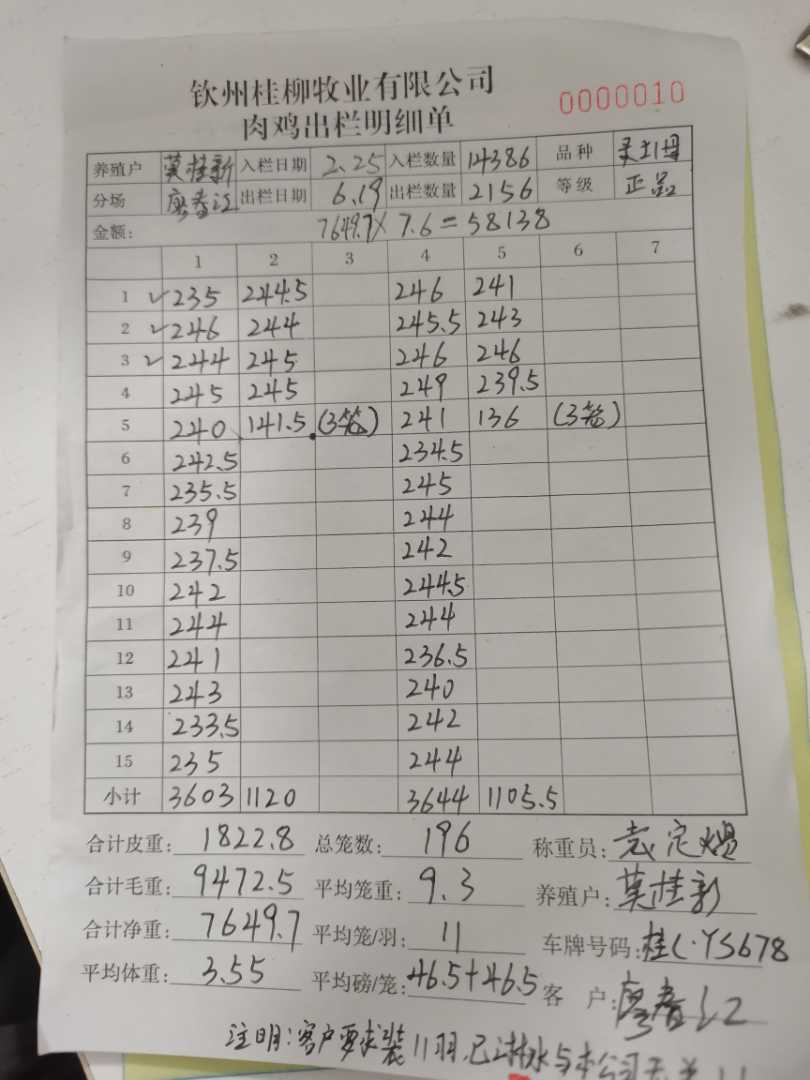 钦州桂柳牧业有限公司
肉鸡出栏明细单 0000010
养殖户 莫桂新 入栏日期 2.25 入栏数量 14386 品种
分场 廖春江 出栏日期 6.19 出栏数量 2156 等级 正品
金额: 7649.7× 7.6 = 58138
1 2 3 4 5 6 7
1 ✓ 235 244.5 246 241
2 ✓ 246 244 245.5 243
3 ✓ 244 245 246 246
4 245 245 249 239.5
5 240 141.5 (3笼) 241 136 (3笼)
6 242.5 234.5
7 235.5 245
8 239 244
9 237.5 242
10 242 244.5
11 244 244
12 241 236.5
13 243 240
14 233.5 242
15 235 244
小计 3603 1120 3644 1105.5
合计皮重: 1822.8 总笼数: 196 称重员:
合计毛重: 9472.5 平均笼重: 9.3 养殖户: 莫桂新
合计净重: 7649.7 平均笼/羽: 11 车牌号码: 桂C·YS678
平均体重: 3.55 平均磅/笼: 46.5+46.5 客 户: 廖春江
注明:客户要求装11羽,已 水与本公司无关